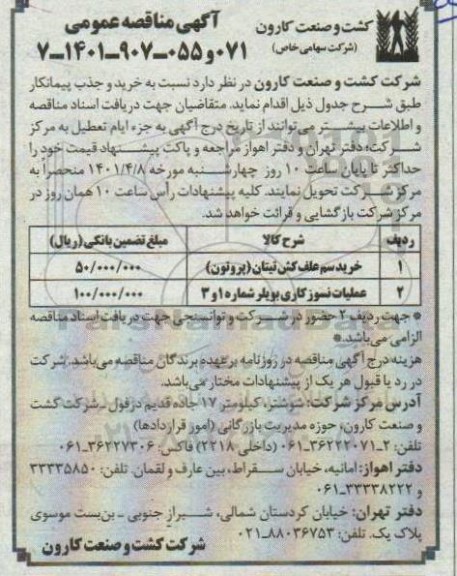 آگهی مناقصه عمومی
کشت و صنعت کارون
(شرکت سهامی خاص)
۰۷۱ و ۰۵۵-۹۰۷-۱۴۰۱-۷
شرکت کشت و صنعت کارون در نظر دارد نسبت به خرید و جذب پیمانکار
طبق شرح جدول ذیل اقدام نماید. متقاضیان جهت دریافت اسناد مناقصه
و اطلاعات بیشتر می‌توانند از تاریخ درج آگهی به جزء ایام تعطیل به مرکز
شرکت، دفتر تهران و دفتر اهواز مراجعه و پاکت پیشنهاد قیمت خود را
حداکثر تا پایان ساعت ۱۰ روز چهارشنبه مورخه ۱۴۰۱/۴/۸ منحصراً به
مرکز شرکت تحویل نمایند. کلیه پیشنهادات رأس ساعت ۱۰ همان روز در
مرکز شرکت بازگشایی و قرائت خواهد شد.
ردیف شرح کالا مبلغ تضمین بانکی (ریال)
۱ خرید سم علف کش تیتان (پروتون) ۵۰/۰۰۰/۰۰۰
۲ عملیات نسوزکاری بویلر شماره ۱ و ۳ ۱۰۰/۰۰۰/۰۰۰
* جهت ردیف ۲ حضور در شرکت و توانسنجی جهت دریافت اسناد مناقصه
الزامی می‌باشد.*
هزینه درج آگهی مناقصه در روزنامه بر عهده برندگان مناقصه می‌باشد. شرکت
در رد یا قبول هر یک از پیشنهادات مختار می‌باشد.
آدرس مرکز شرکت: شوشتر، کیلومتر ۱۷ جاده قدیم دزفول ـ شرکت کشت
و صنعت کارون، حوزه مدیریت بازرگانی (امور قراردادها)
تلفن: ۲-۳۶۲۲۲۰۷۱-۰۶۱ (داخلی ۲۲۱۸) فاکس: ۳۶۲۲۷۳۰۶-۰۶۱
دفتر اهواز: امانیه، خیابان سقراط، بین عارف و لقمان. تلفن: ۳۳۳۳۵۸۵۰
و ۳۳۳۳۸۲۲۲-۰۶۱
دفتر تهران: خیابان کردستان شمالی، شیراز جنوبی ـ بن‌بست موسوی
پلاک یک. تلفن: ۸۸۰۳۶۷۵۳-۰۲۱
شرکت کشت و صنعت کارون